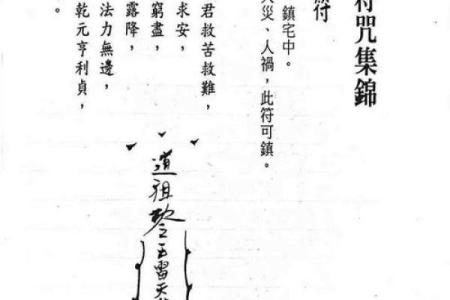 符咒集錦
付
鎮宅中。
災、人禍，此符可鎮。
君救苦救難，
求安，
窮盡，
露降，
法力無邊，
乾元亨利貞，
。
道祖勅令五雷天